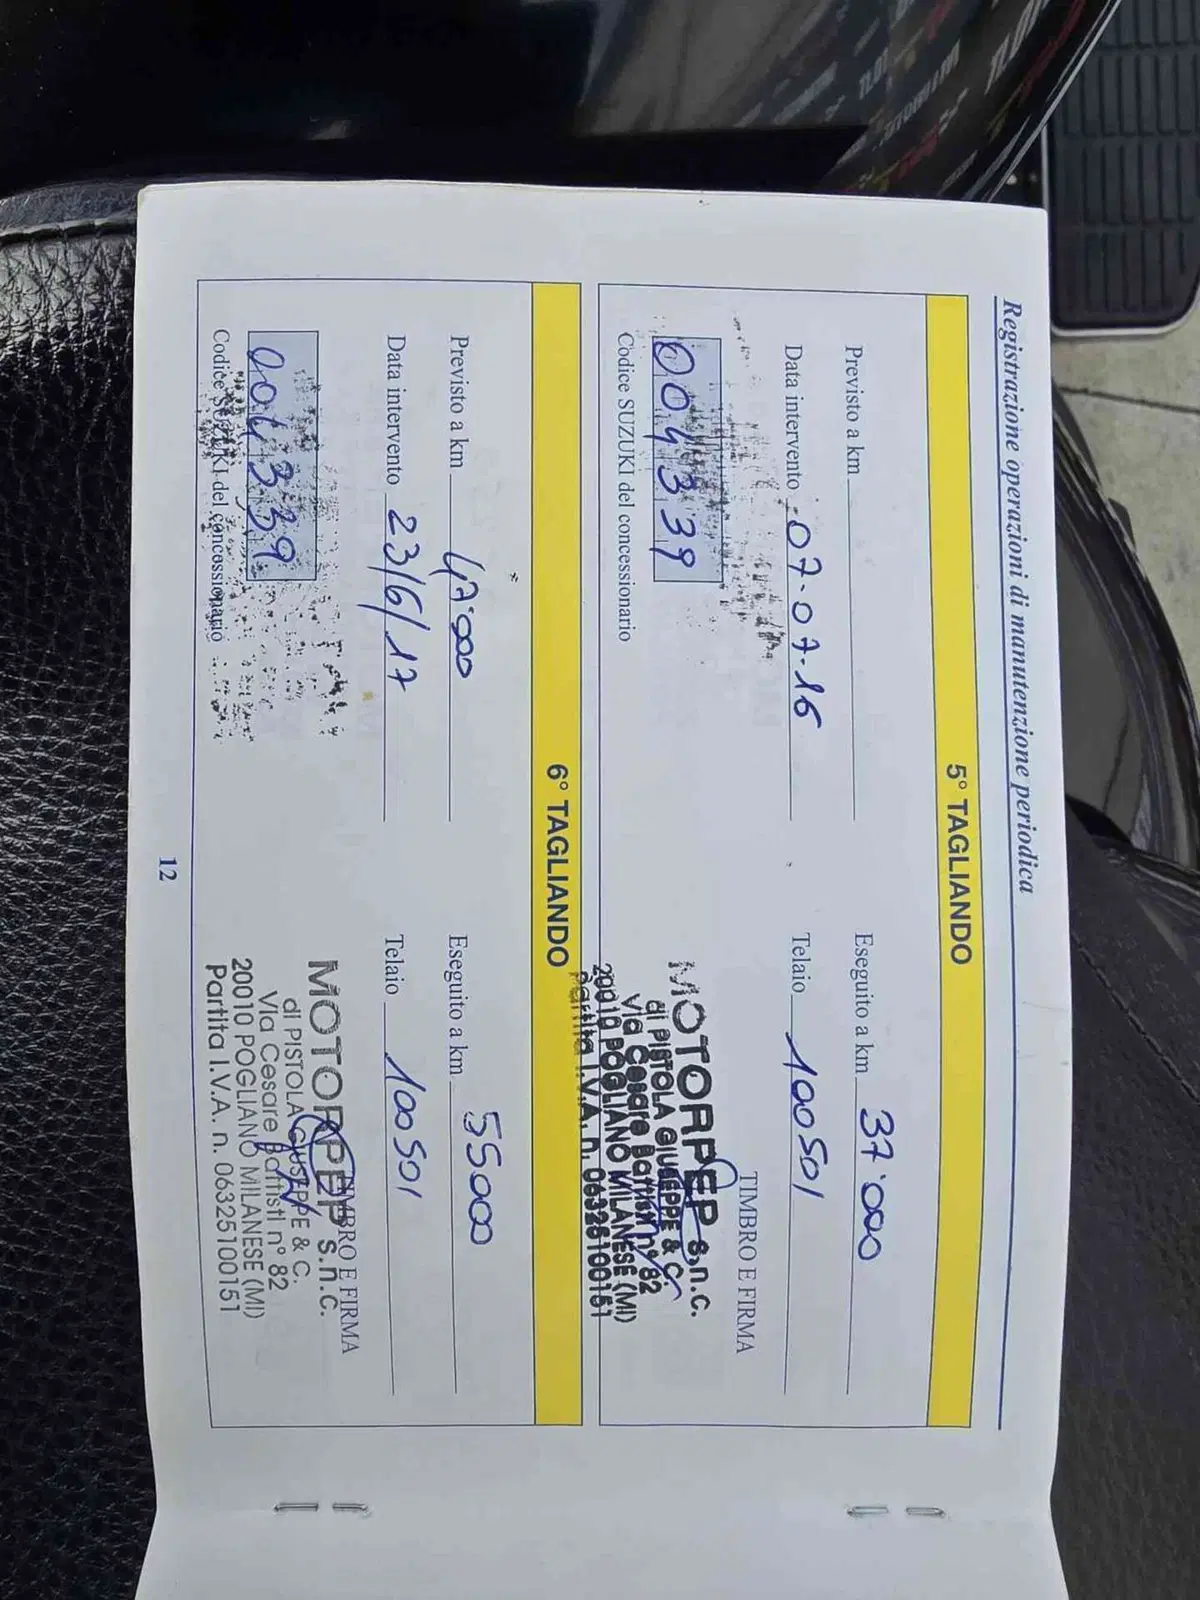 Registrazione operazioni di manutenzione periodica
5° TAGLIANDO
Previsto a km
Eseguito a km 37'000
Data intervento 07.07.16
Telaio 100501
TIMBRO E FIRMA
004339
Codice SUZUKI del concessionario
MOTORPEP s.n.c.
di PISTOLA GIUSEPPE & C.
Via Cesare Battisti n° 82
20010 POGLIANO MILANESE (MI)
Partita I.V.A. n. 06325100151
6° TAGLIANDO
Previsto a km 47'000
Eseguito a km 55000
Data intervento 23/6/17
Telaio 100501
TIMBRO E FIRMA
004339
Codice SUZUKI del concessionario
MOTORPEP s.n.c.
di PISTOLA GIUSEPPE & C.
Via Cesare Battisti n° 82
20010 POGLIANO MILANESE (MI)
Partita I.V.A. n. 06325100151
12